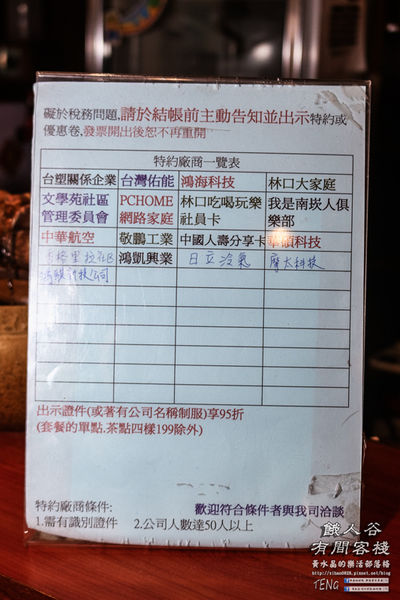 礙於稅務問題,請於結帳前主動告知並出示特約或
優惠卷,發票開出後恕不再重開
特約廠商一覽表
台塑關係企業 台灣佑能 鴻海科技 林口大家庭
文學苑社區 PCHOME 林口吃喝玩樂 我是南崁人俱
管理委員會 網路家庭 社員卡 樂部
中華航空 敬鵬工業 中國人壽分享卡 華碩科技
鴻凱興業 日立冷氣 摩太科技
出示證件(或著有公司名稱制服)享95折
(套餐的單點.茶點四樣199除外)
特約廠商條件: 歡迎符合條件者與我司洽談
1.需有識別證件 2.公司人數達50人以上
饞人谷
有間客棧
黃水晶的樂活部落格
TENG